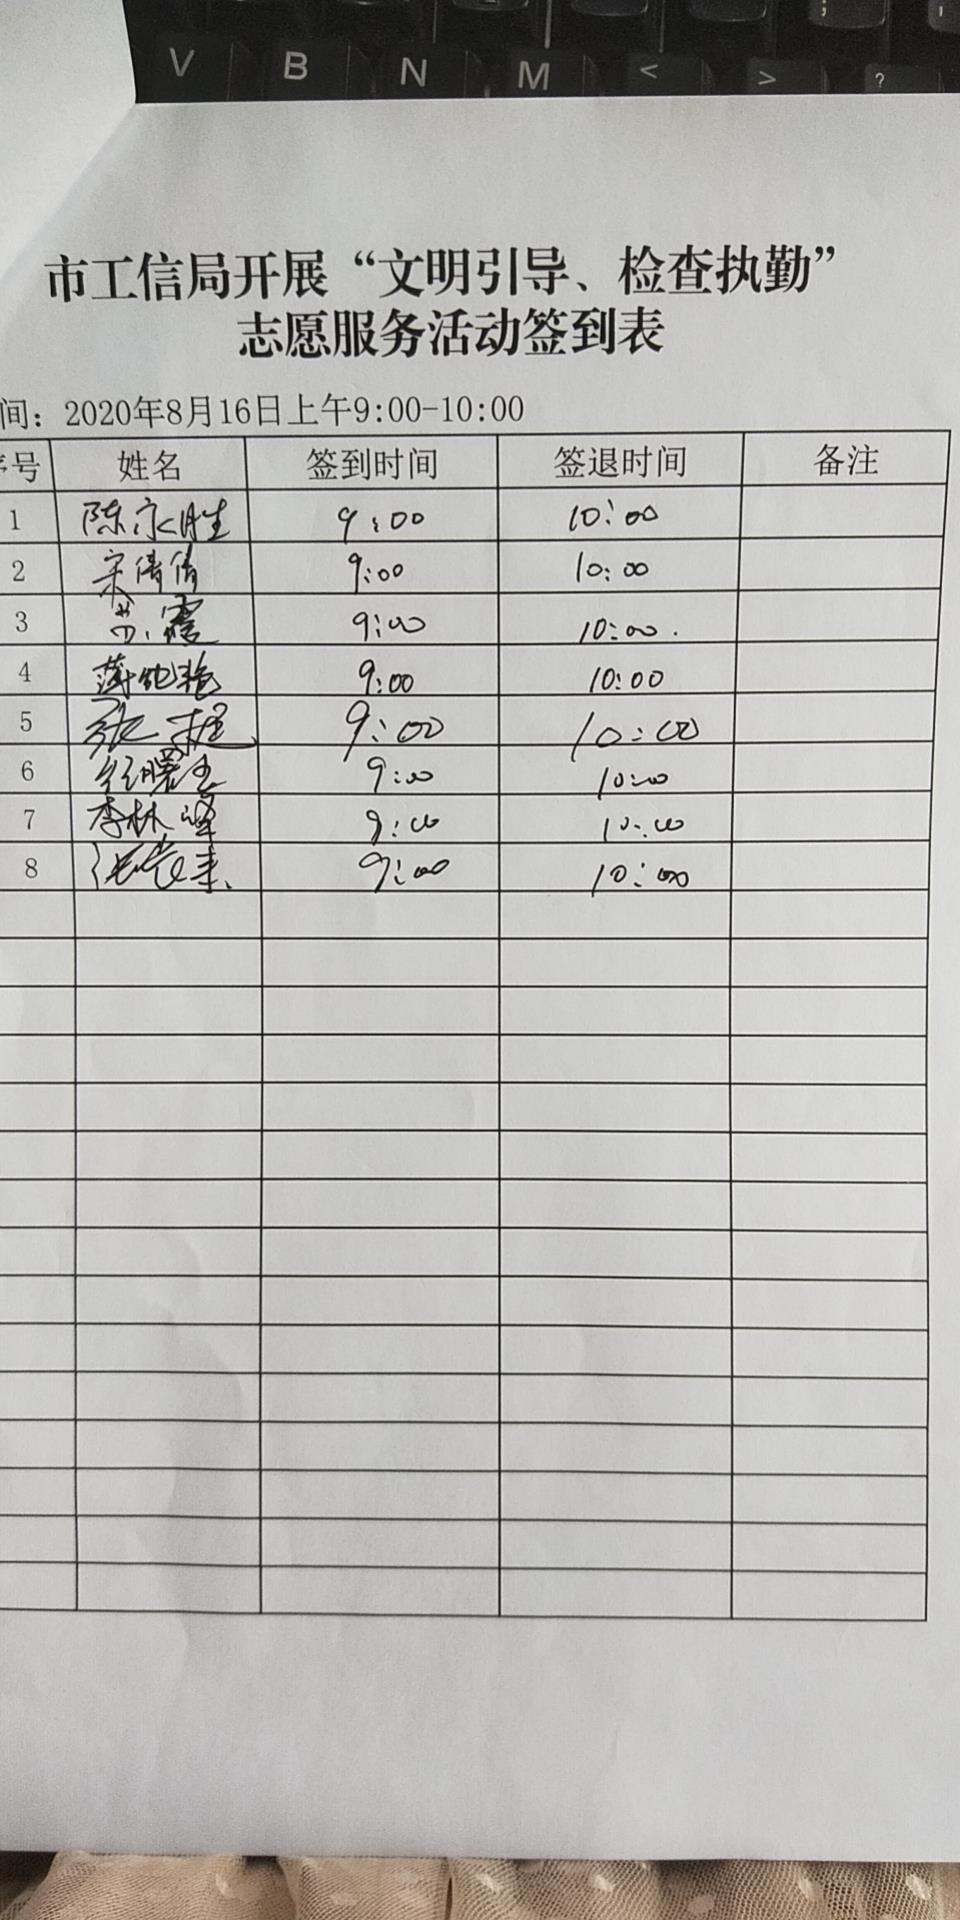 V B N M < > ?
市工信局开展“文明引导、检查执勤”
志愿服务活动签到表
间：2020年8月16日上午9:00-10:00
序号 姓名 签到时间 签退时间 备注
1 陈永胜 9:00 10:00
2 宋倩倩 9:00 10:00
3 苏霞 9:00 10:00.
4 9:00 10:00
5 张 9:00 10:00
6 9:00 10:00
7 李林峰 9:00 10:00
8 9:00 10:00